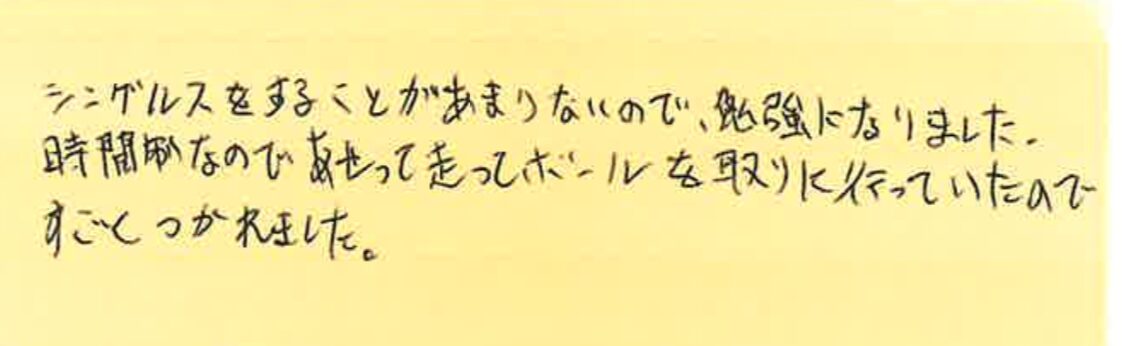 シングルスをすることがあまりないので、勉強になりました。
時間制なのであせって走ってボールを取りに行っていたので
すごくつかれました。